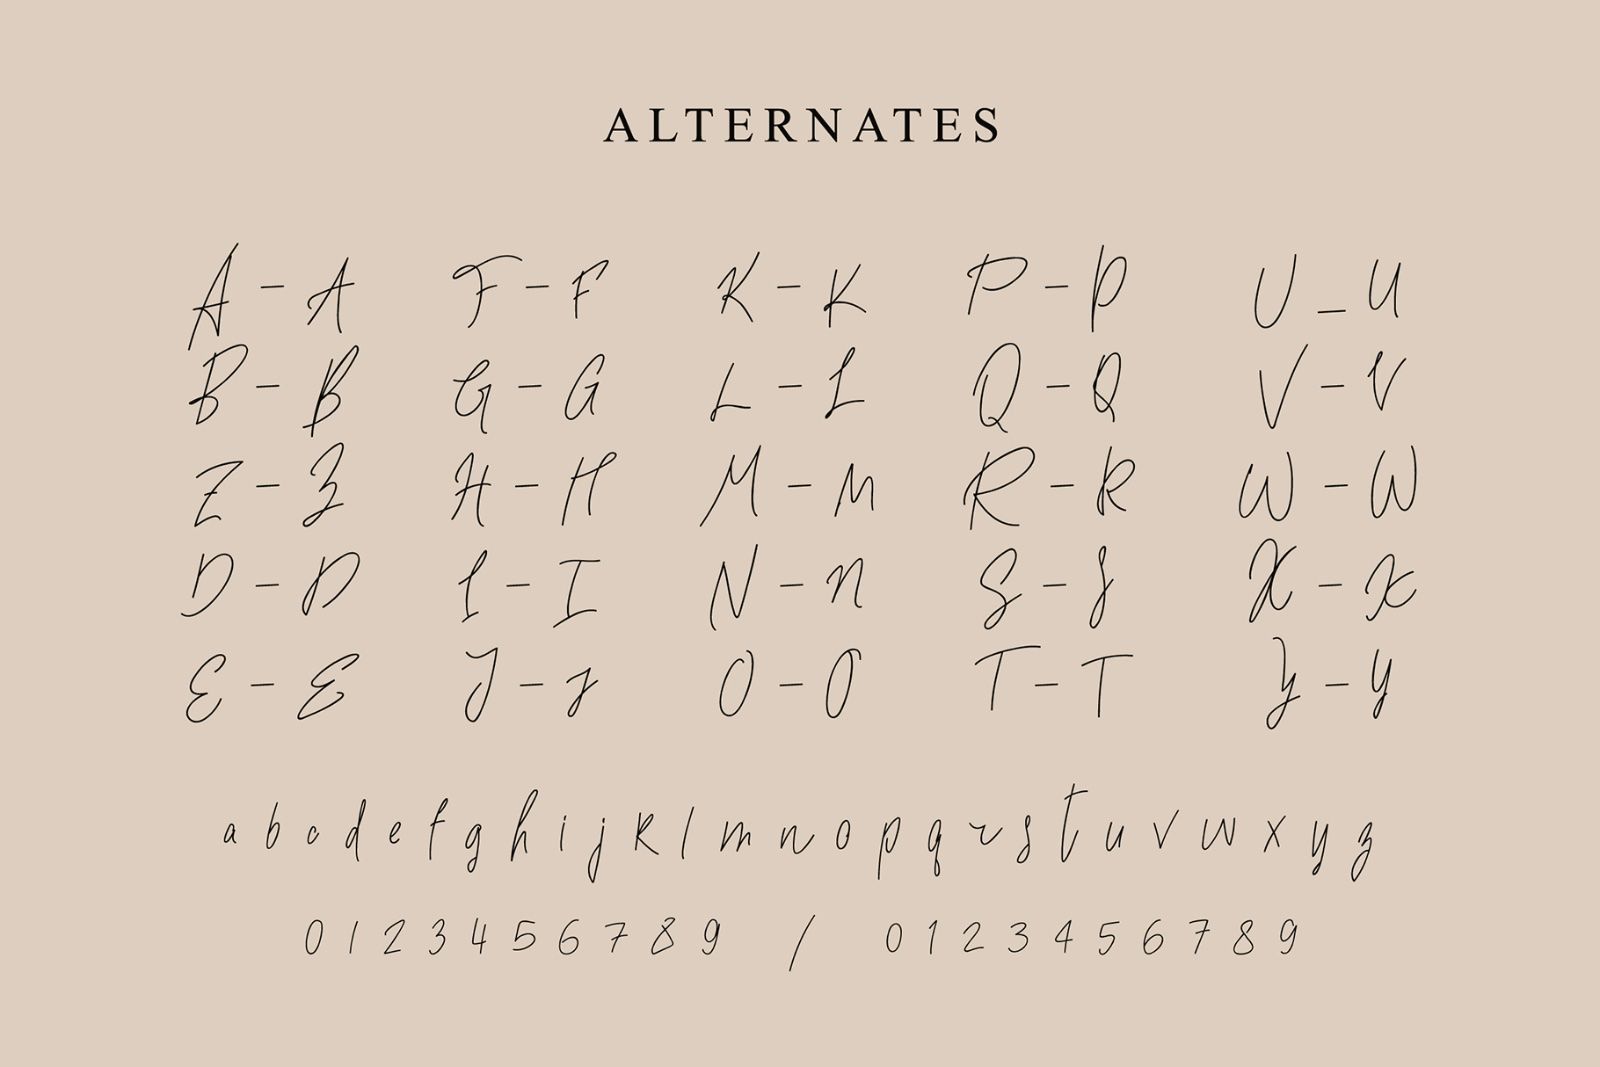 ALTERNATES
A - A F - F K - K P - P U _ U
B - B G - G L - L Q - Q V - V
Z - Z H - H M - M R - R W - W
D - D I - I N - n S - S X - X
E - E J - J O - O T - T Y - Y
a b c d e f g h i j k l m n o p q r s t u v w x y z
0 1 2 3 4 5 6 7 8 9 / 0 1 2 3 4 5 6 7 8 9